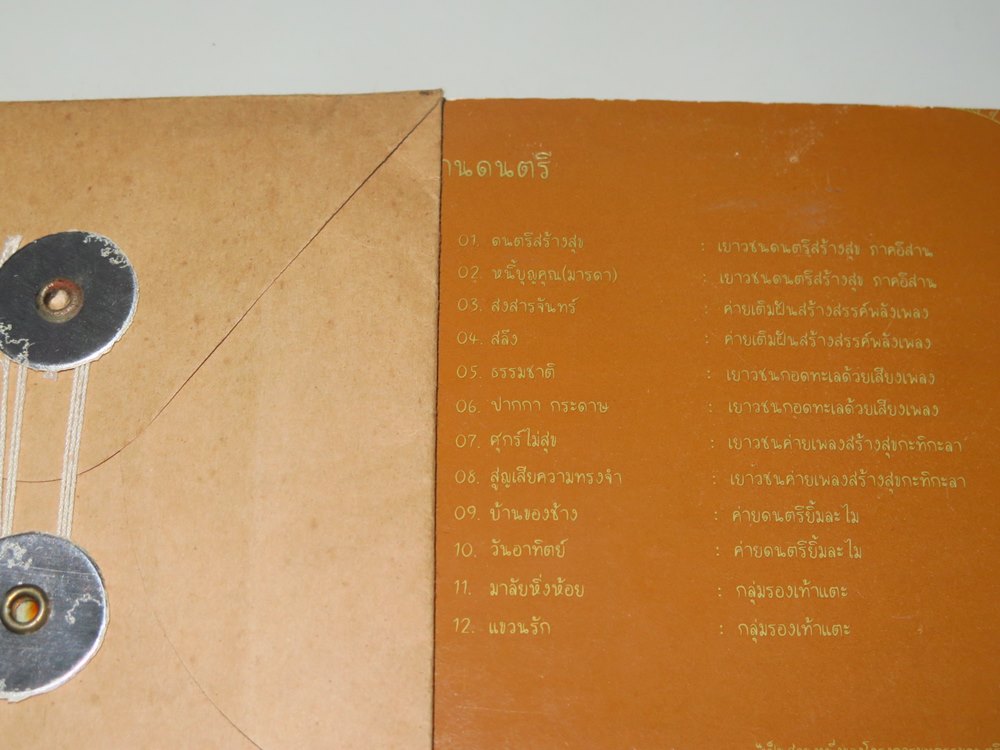 านดนตรี
01. ดนตรีสร้างสุข : เยาวชนดนตรีสร้างสุข ภาคอีสาน
02. หนี้บุญคุณ(มารดา) : เยาวชนดนตรีสร้างสุข ภาคอีสาน
03. ส่งสารจันทร์ : ค่ายเติมฝันสร้างสรรค์พลังเพลง
04. สลึง : ค่ายเติมฝันสร้างสรรค์พลังเพลง
05. ธรรมชาติ : เยาวชนกอดทะเลด้วยเสียงเพลง
06. ปากกา กระดาษ : เยาวชนกอดทะเลด้วยเสียงเพลง
07. ศุกร์ไม่สุข : เยาวชนค่ายเพลงสร้างสุขกะทิกะลา
08. สูญเสียความทรงจำ : เยาวชนค่ายเพลงสร้างสุขกะทิกะลา
09. บ้านของช้าง : ค่ายดนตรียิ้มละไม
10. วันอาทิตย์ : ค่ายดนตรียิ้มละไม
11. มาลัยหิ่งห้อย : กลุ่มรองเท้าแตะ
12. แขวนรัก : กลุ่มรองเท้าแตะ